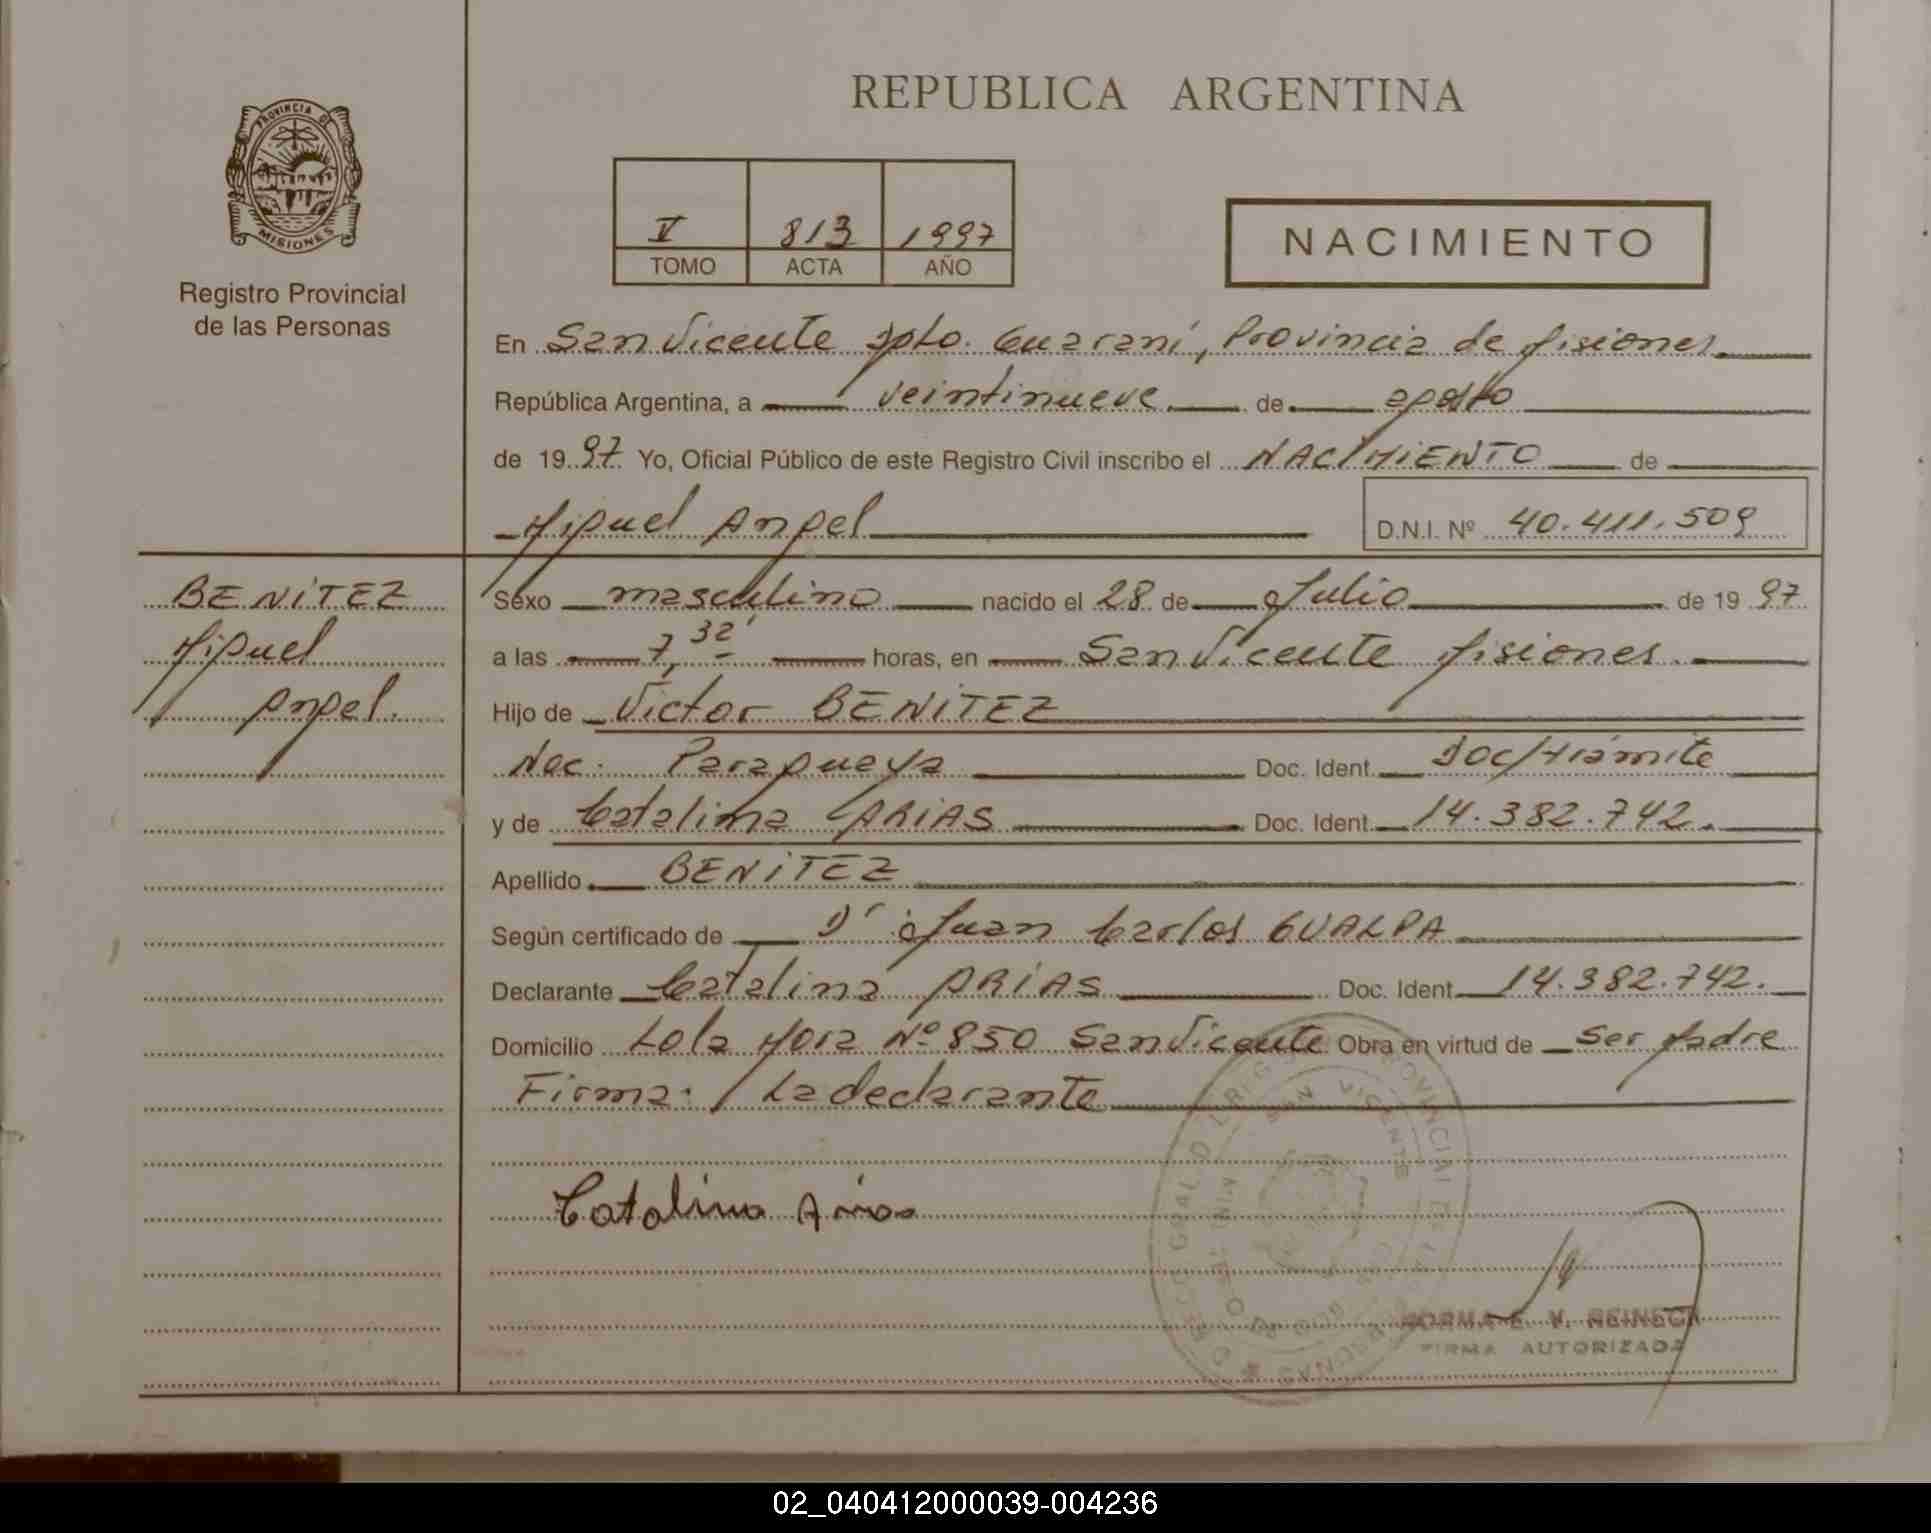 REPUBLICA ARGENTINA
PROVINCIA DE
MISIONES
Registro Provincial
de las Personas
V 813 1997
TOMO ACTA AÑO
NACIMIENTO
En San Vicente Dpto. Guaraní, Provincia de Misiones
República Argentina, a veintinueve de agosto
de 1997 Yo, Oficial Público de este Registro Civil inscribo el NACIMIENTO de
Miguel Angel D.N.I. Nº 40.411.509
BENITEZ
Miguel
Angel.
Sexo masculino nacido el 28 de Julio de 1997
a las 7,32' horas, en San Vicente Misiones.
Hijo de Victor BENITEZ
Nac. Paraguaya Doc. Ident. Doc/trámite
y de Catalina ARIAS Doc. Ident. 14.382.742.
Apellido BENITEZ
Según certificado de Dr Juan Carlos GUALPA
Declarante Catalina ARIAS Doc. Ident. 14.382.742.
Domicilio Lola Mora Nº 850 San Vicente Obra en virtud de Ser Madre
Firma: La declarante
Catalina Arias
SAN VICENTE
NORMA E. V. REINECK
FIRMA AUTORIZADA
02_040412000039-004236